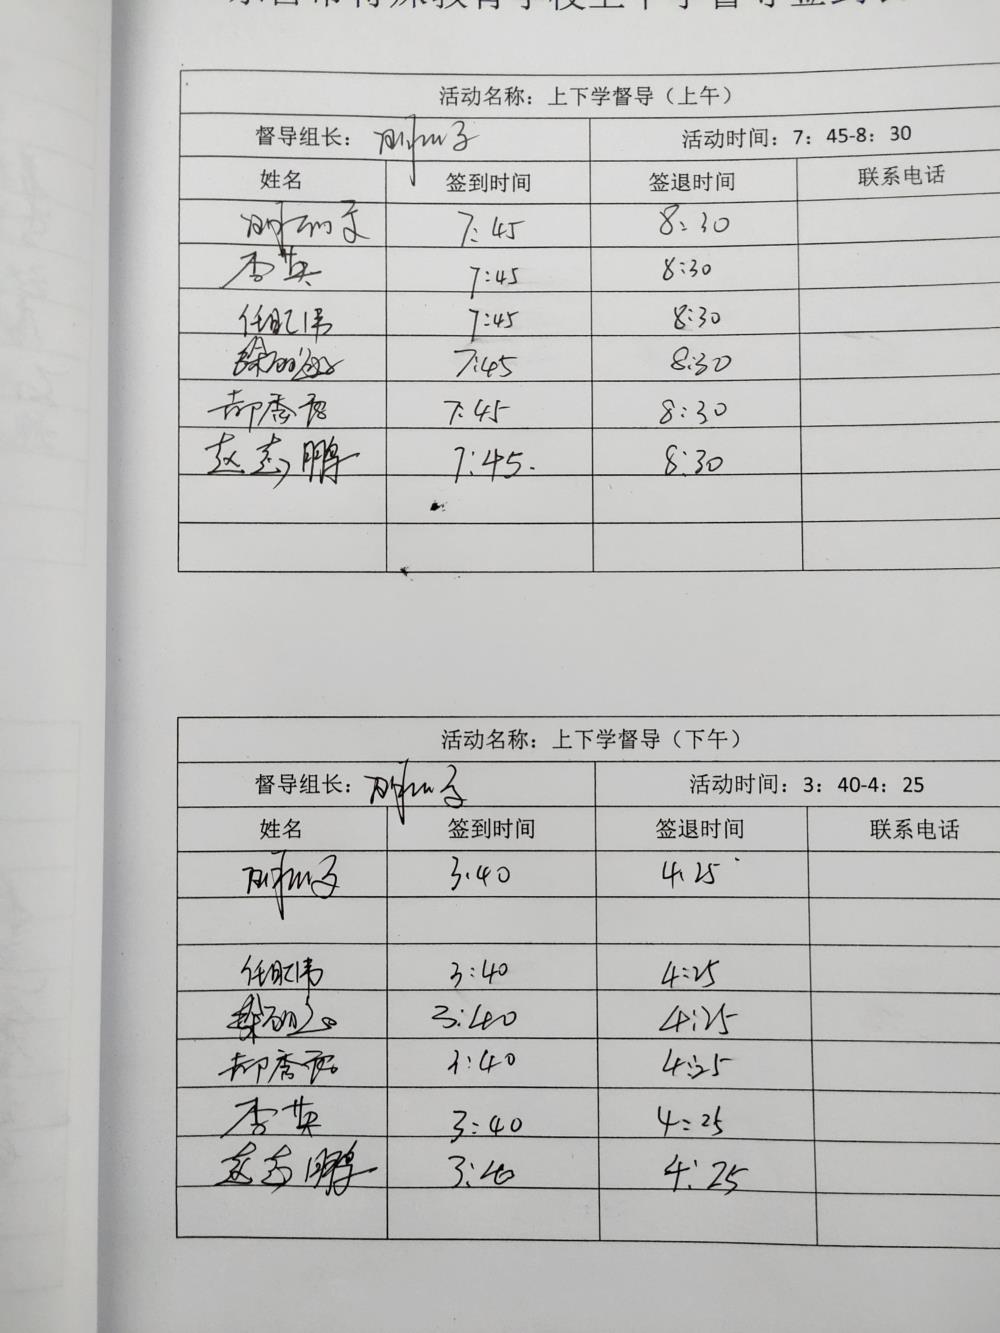 活动名称：上下学督导（上午）
督导组长： 活动时间：7：45-8：30
姓名 签到时间 签退时间 联系电话
7:45 8:30
李英 7:45 8:30
任旺伟 7:45 8:30
7:45 8:30
郝秀 7:45 8:30
赵志鹏 7:45. 8:30
活动名称：上下学督导（下午）
督导组长： 活动时间：3：40-4：25
姓名 签到时间 签退时间 联系电话
3:40 4:25
任旺伟 3:40 4:25
3:40 4:25
郝秀 3:40 4:25
李英 3:40 4:25
赵志鹏 3:40 4:25